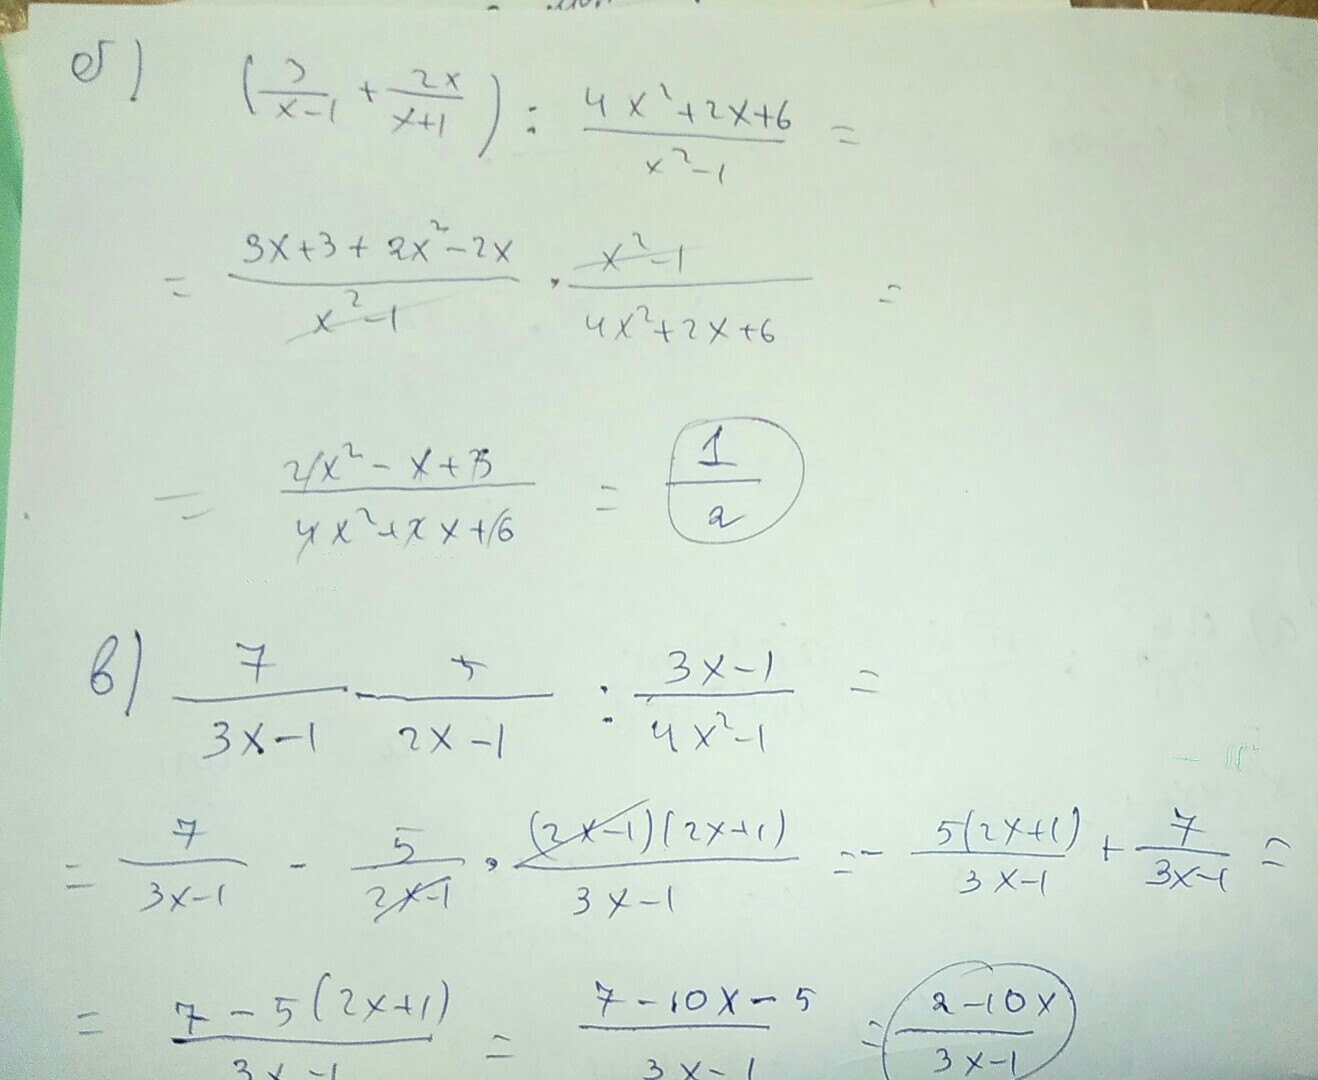 б) (3/(x-1) + 2x/(x+1)) : (4x²+2x+6)/(x²-1) =
= (3x+3+2x²-2x)/(x²-1) · (x²-1)/(4x²+2x+6) =
= (2x²-x+3)/(4x²+2x+6) = 1/2
в) 7/(3x-1) - 5/(2x-1) : (3x-1)/(4x²-1) =
= 7/(3x-1) - 5/(2x-1) · (2x-1)(2x+1)/(3x-1) = - 5(2x+1)/(3x-1) + 7/(3x-1) =
= (7-5(2x+1))/(3x-1) = (7-10x-5)/(3x-1) = (2-10x)/(3x-1)